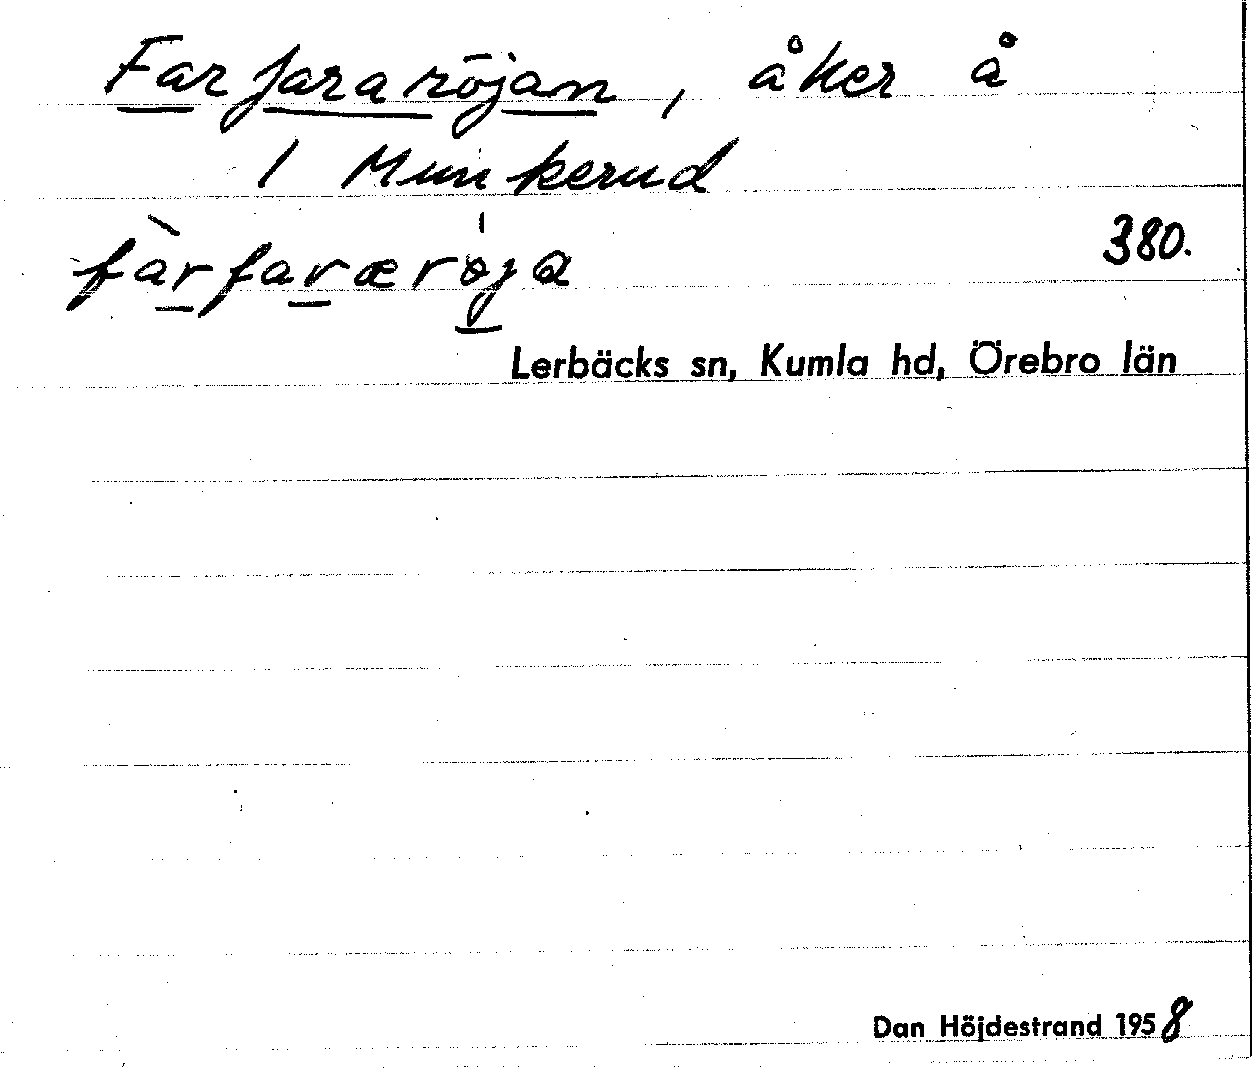 Farfararöjan, åker å
1 Munkerud
fàrfaværøja
380.
Lerbäcks sn, Kumla hd, Örebro län
Dan Höjdestrand 1958